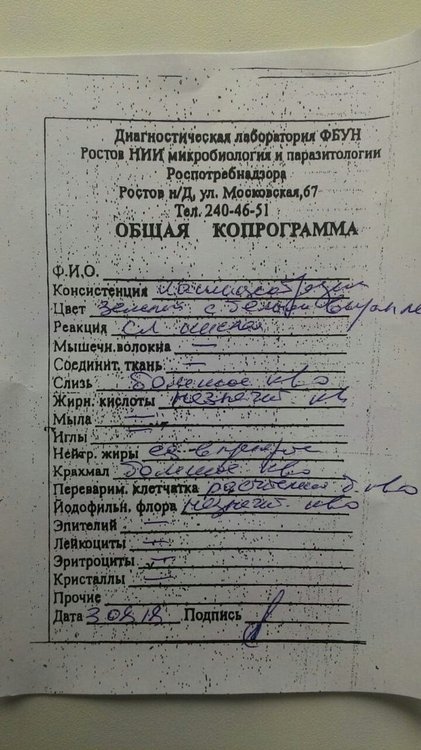 Диагностическая лаборатория ФБУН
Ростов НИИ микробиология и паразитологии
Роспотребнадзора
Ростов н/Д, ул. Московская,67
Тел. 240-46-51
ОБЩАЯ КОПРОГРАММА
Ф.И.О.
Консистенция
Цвет с белыми
Реакция сл кислая
Мышечн.волокна —
Соединит. ткань —
Слизь большое кво
Жирн. кислоты незначит кв
Мыла —
Иглы —
Нейтр. жиры ед в преп
Крахмал большое кво
Переварим. клетчатка б. кво
Йодофильн. флора незначит. кво
Эпителий —
Лейкоциты —
Эритроциты —
Кристаллы —
Прочие
Дата Подпись